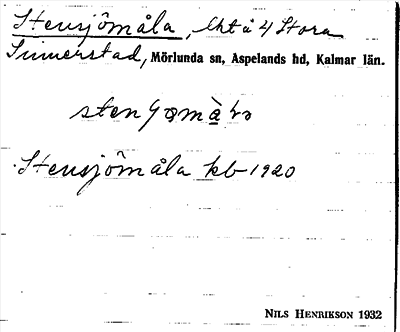 Stensjömåla, lht å 4 Stora
Simmerstad, Mörlunda sn, Aspelands hd, Kalmar län.
Stensjömåla kb 1920
NILS HENRIKSON 1932